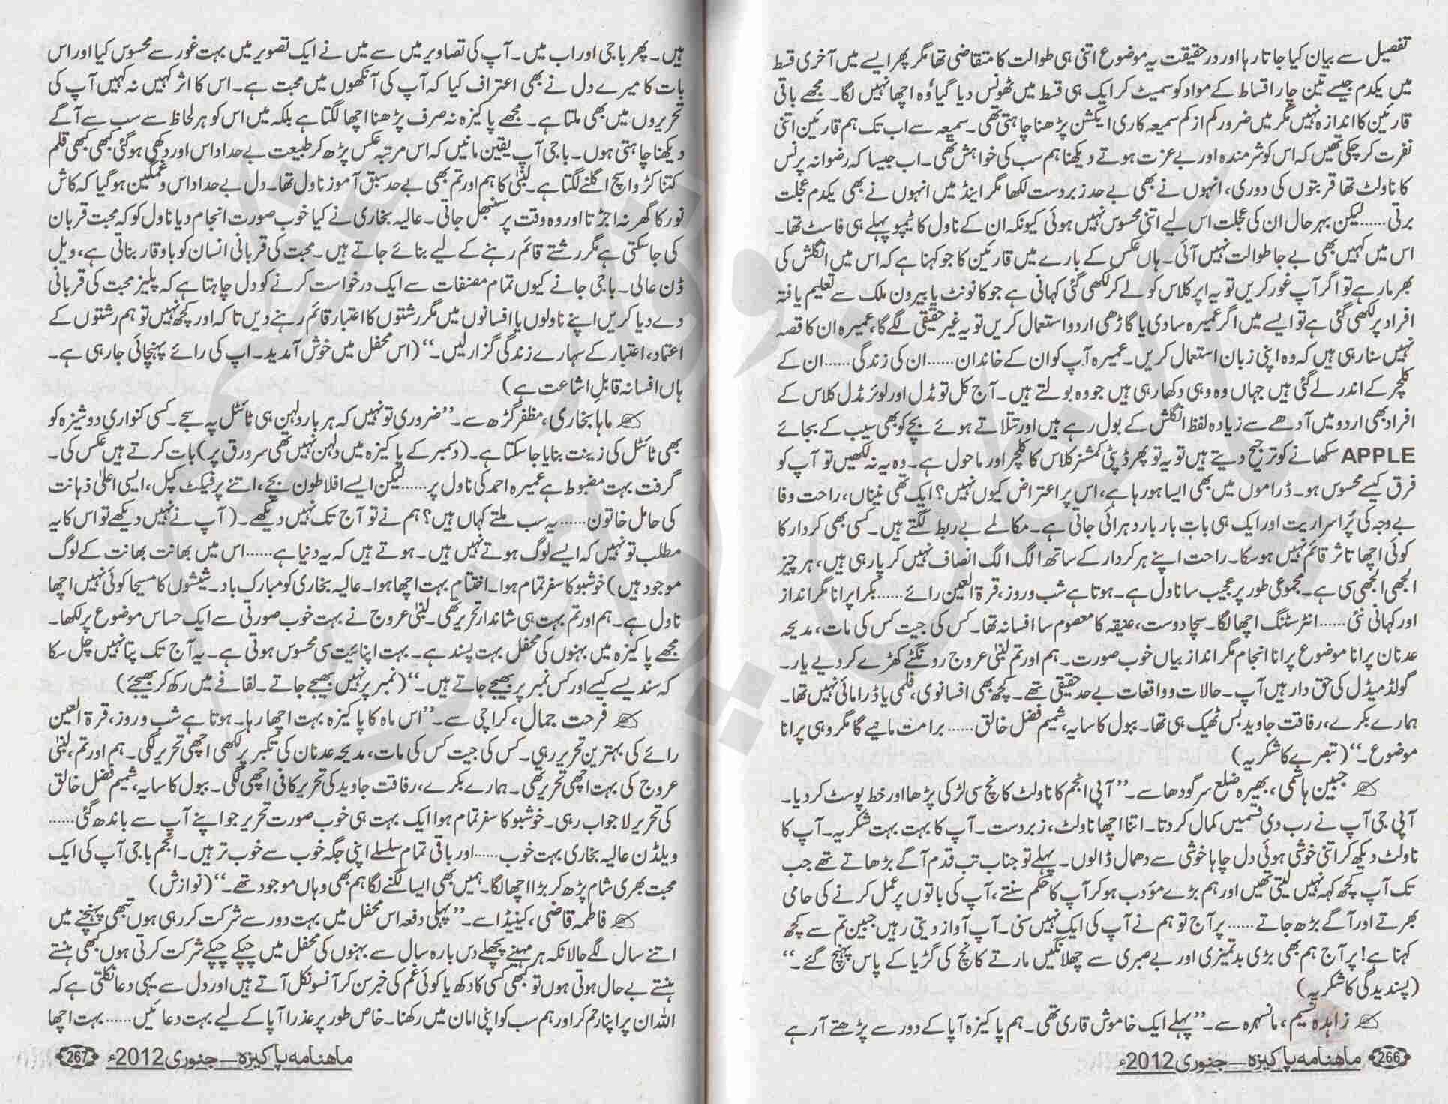 تفصیل سے بیان کیا جاتا رہا اور درحقیقت یہ موضوع اتنی ہی طوالت کا متقاضی تھا مگر پھر ایسے میں آخری قسط
میں یکدم جیسے تین چار اقساط کے مواد کو سمیٹ کر ایک ہی قسط میں ٹھونس دیا گیا وہ اچھا نہیں لگا۔ مجھے باقی
قارئین کا اندازہ نہیں مگر میں ضرور کم از کم سمیعہ کا ری ایکشن پڑھنا چاہتی تھی۔ سمیعہ سے اب تک ہم قارئین اتنی
نفرت کر چکی تھیں کہ اس کو شرمندہ اور بے عزت ہوتے دیکھنا ہم سب کی خواہش تھی۔ اب جیسا کہ رضوانہ پرنس
کا ناولٹ تھا قربتوں کی دوری، انہوں نے بھی بے حد زبردست لکھا مگر اینڈ میں انہوں نے بھی یکدم عجلت
برتی...... لیکن بہرحال ان کی عجلت اس لیے اتنی محسوس نہیں ہوئی کیونکہ ان کے ناول کا ٹیمپو پہلے ہی فاسٹ تھا۔
اس میں کہیں بھی بے جا طوالت نہیں آئی۔ ہاں عکس کے بارے میں قارئین کا جو کہنا ہے کہ اس میں انگلش کی
بھرمار ہے تو اگر آپ غور کریں تو یہ اپر کلاس کو لے کر لکھی گئی کہانی ہے جو کانونٹ یا بیرون ملک سے تعلیم یافتہ
افراد پر لکھی گئی ہے تو ایسے میں اگر عمیرہ سادی یا گاڑھی اردو استعمال کریں تو یہ غیر حقیقی لگے گا، عمیرہ ان کا قصہ
نہیں سنا رہی ہیں کہ وہ اپنی زبان استعمال کریں۔ عمیرہ آپ کو ان کے خاندان...... ان کی زندگی...... ان کے
کلچر کے اندر لے گئی ہیں جہاں وہ وہی دکھا رہی ہیں جو وہ بولتے ہیں۔ آج کل تو مڈل اور لوئر مڈل کلاس کے
افراد بھی اردو میں آدھے سے زیادہ لفظ انگلش کے بول رہے ہیں اور تتلاتے ہوئے بچے کو بھی سیب کے بجائے
APPLE سکھانے کو ترجیح دیتے ہیں تو یہ تو پھر ڈپٹی کمشنر کلاس کا کلچر اور ماحول ہے۔ وہ یہ نہ لکھیں تو آپ کو
فرق کیسے محسوس ہو۔ ڈراموں میں بھی ایسا ہو رہا ہے، اس پر اعتراض کیوں نہیں؟ ایک تھی نیناں، راحت وفا
بے وجہ کی پُراسراریت اور ایک ہی بات بار بار دہرائی جاتی ہے۔ مکالمے بے ربط لگتے ہیں۔ کسی بھی کردار کا
کوئی اچھا تاثر قائم نہیں ہو سکا۔ راحت اپنے ہر کردار کے ساتھ الگ الگ انصاف نہیں کر پا رہی ہیں، ہر چیز
الجھی الجھی سی ہے۔ مجموعی طور پر عجیب سا ناول ہے۔ ہوتا ہے شب و روز، قرۃ العین رائے...... بکرا پرانا مگر انداز
اور کہانی نئی...... انٹرسٹنگ اچھا لگا۔ سچا دوست، عتیقہ کا معصوم سا افسانہ تھا۔ کس کی جیت کس کی مات، مدیحہ
عدنان پرانا موضوع پرانا انجام مگر انداز بیاں خوب صورت۔ ہم اور تم لبنیٰ عروج رونگٹے کھڑے کر دیے یار۔
گولڈ میڈل کی حق دار ہیں آپ۔ حالات و واقعات بے حد حقیقی تھے۔ کچھ بھی افسانوی، فلمی یا ڈرامائی نہیں تھا۔
ہمارے بکرے، رفاقت جاوید بس ٹھیک ہی تھا۔ ببول کا سایہ، شمیم فضل خالق...... برا مت مانیے گا مگر وہی پرانا
موضوع۔‘‘ (تبصرے کا شکریہ)
جبین ہاشمی، بھیرہ ضلع سرگودھا سے۔ ’’آپی انجم کا ناولٹ کانچ سی لڑکی پڑھا اور خط پوسٹ کر دیا۔
آپی جی آپ نے رب دی قسمیں کمال کر دتا۔ اتنا اچھا ناولٹ، زبردست۔ آپ کا بہت بہت شکریہ۔ آپ کا
ناولٹ دیکھ کر اتنی خوشی ہوئی دل چاہا خوشی سے دھمال ڈالوں۔ پہلے تو جناب تب قدم آگے بڑھاتے تھے جب
تک آپ کچھ کہہ نہیں لیتی تھیں اور ہم بڑے مؤدب ہو کر آپ کا حکم سنتے، آپ کی باتوں پر عمل کرنے کی حامی
بھرتے اور آگے بڑھ جاتے...... پر آج تو ہم نے آپ کی ایک نہیں سنی۔ آپ آواز دیتی رہیں جبین تم سے کچھ
کہنا ہے! پر آج ہم بھی بڑی بدتمیزی اور بے صبری سے چھلانگیں مارتے کانچ کی گڑیا کے پاس پہنچ گئے۔‘‘
(پسندیدگی کا شکریہ)
زاہدہ نسیم، مانسہرہ سے۔ ’’پہلے ایک خاموش قاری تھی۔ ہم پاکیزہ آپا کے دور سے پڑھتے آ رہے
266 ماہنامہ پاکیزہ — جنوری 2012ء
ہیں۔ پھر باجی اور اب میں۔ آپ کی تصاویر میں سے میں نے ایک تصویر میں بہت غور سے محسوس کیا اور اس
بات کا میرے دل نے بھی اعتراف کیا کہ آپ کی آنکھوں میں محبت ہے۔ اس کا اثر کہیں نہ کہیں آپ کی
تحریروں میں بھی ملتا ہے۔ مجھے پاکیزہ نہ صرف پڑھنا اچھا لگتا ہے بلکہ میں اس کو ہر لحاظ سے سب سے آگے
دیکھنا چاہتی ہوں۔ باجی آپ یقین مانیں کہ اس مرتبہ عکس پڑھ کر طبیعت بے حد اداس اور دکھی ہو گئی کبھی کبھی قلم
کتنا کڑوا سچ اگلنے لگتا ہے۔ لبنیٰ کا ہم اور تم بھی بے حد سبق آموز ناول تھا۔ دل بے حد اداس و غمگین ہو گیا کہ کاش
نور کا گھر نہ اجڑتا اور وہ وقت پر سنبھل جاتی۔ عالیہ بخاری نے کیا خوب صورت انجام دیا ناول کو کہ محبت قربان
کی جا سکتی ہے مگر رشتے قائم رہنے کے لیے بنائے جاتے ہیں۔ محبت کی قربانی انسان کو باوقار بناتی ہے، ویل
ڈن عالی۔ باجی جانے کیوں تمام مصنفات سے ایک درخواست کرنے کو دل چاہتا ہے کہ پلیز محبت کی قربانی
دے دیا کریں اپنے ناولوں یا افسانوں میں مگر رشتوں کا اعتبار قائم رہنے دیں تا کہ اور کچھ نہیں تو ہم رشتوں کے
اعتماد، اعتبار کے سہارے زندگی گزار لیں۔‘‘ (اس محفل میں خوش آمدید۔ آپ کی رائے پہنچائی جا رہی ہے۔
ہاں افسانہ قابلِ اشاعت ہے)
ماہا بخاری، مظفر گڑھ سے۔ ’’ضروری تو نہیں کہ ہر بار دلہن ہی ٹائٹل پہ سجے۔ کسی کنواری دوشیزہ کو
بھی ٹائٹل کی زینت بنایا جا سکتا ہے۔ (دسمبر کے پاکیزہ میں دلہن نہیں تھی سرورق پر) بات کرتے ہیں عکس کی۔
گرفت بہت مضبوط ہے عمیرہ احمد کی ناول پر...... لیکن ایسے افلاطون بچے، اتنے پرفیکٹ کپل، ایسی اعلیٰ ذہانت
کی حامل خاتون...... یہ سب ملتے کہاں ہیں؟ ہم نے تو آج تک نہیں دیکھے۔ (آپ نے نہیں دیکھے تو اس کا یہ
مطلب تو نہیں کہ ایسے لوگ ہوتے نہیں ہیں۔ ہوتے ہیں کہ یہ دنیا ہے...... اس میں بھانت بھانت کے لوگ
موجود ہیں) خوشبو کا سفر تمام ہوا۔ اختتام بہت اچھا ہوا۔ عالیہ بخاری کو مبارک باد۔ شیشوں کا مسیحا کوئی نہیں اچھا
ناول ہے۔ ہم اور تم بہت ہی شاندار تحریر تھی۔ لبنیٰ عروج نے بہت خوب صورتی سے ایک حساس موضوع پر لکھا۔
مجھے پاکیزہ میں بہنوں کی محفل بہت پسند ہے۔ بہت اپنائیت سی محسوس ہوتی ہے۔ یہ آج تک پتا نہیں چل سکا
کہ سندیسے کیسے اور کس نمبر پر بھیجے جاتے ہیں۔‘‘ (نمبر پر نہیں بھیجے جاتے۔ لفافے میں رکھ کر بھیجیے)
فرحت جمال، کراچی سے۔ ’’اس ماہ کا پاکیزہ بہت اچھا رہا۔ ہوتا ہے شب و روز، قرۃ العین
رائے کی بہترین تحریر رہی۔ کس کی جیت کس کی مات، مدیحہ عدنان کی تکبر پر لکھی اچھی تحریر لگی۔ ہم اور تم، لبنیٰ
عروج کی بہت اچھی تحریر تھی۔ ہمارے بکرے، رفاقت جاوید کی تحریر کافی اچھی لگی۔ ببول کا سایہ، شمیم فضل خالق
کی تحریر لاجواب رہی۔ خوشبو کا سفر تمام ہوا ایک بہت ہی خوب صورت تحریر جو اپنے آپ سے باندھ گئی......
ویلڈن عالیہ بخاری بہت خوب...... اور باقی تمام سلسلے اپنی جگہ خوب سے خوب تر ہیں۔ انجم باجی آپ کی ایک
محبت بھری شام پڑھ کر بڑا اچھا لگا۔ ہمیں بھی ایسا لگنے لگا ہم بھی وہاں موجود تھے۔‘‘ (نوازش)
فاطمہ قاضی، کینیڈا سے۔ ’’پہلی دفعہ اس محفل میں بہت دور سے شرکت کر رہی ہوں تبھی پہنچنے میں
اتنے سال لگے حالانکہ ہر مہینے پچھلے دس بارہ سال سے بہنوں کی محفل میں چپکے چپکے شرکت کرتی ہوں کبھی ہنستے
ہنستے بے حال ہوتی ہوں تو کبھی کسی کا دکھ یا کوئی غم کی خبر سن کر آنسو نکل آتے ہیں اور دل سے یہی دعا نکلتی ہے کہ
اللہ ان پر اپنا رحم کر اور ہم سب کو اپنی امان میں رکھنا۔ خاص طور پر عذرا آپا کے لیے بہت دعائیں...... بہت اچھا
267 ماہنامہ پاکیزہ — جنوری 2012ء